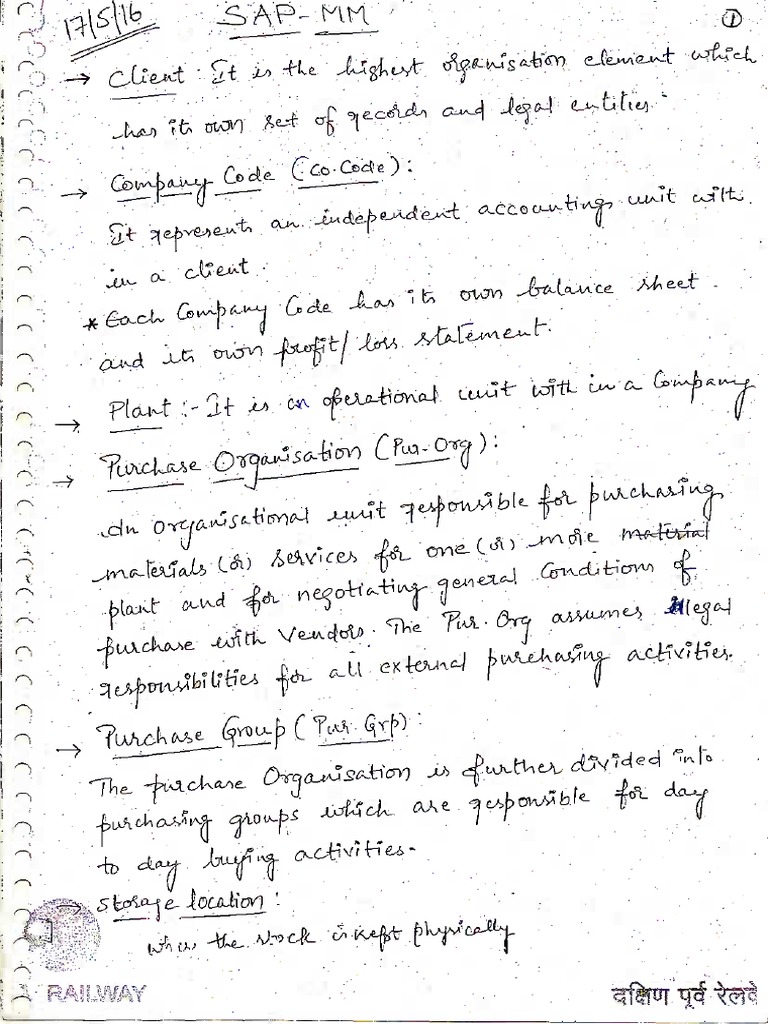 17/5/16 SAP-MM 1
→ Client: It is the highest organisation element which
has its own set of records and legal entities.
→ Company Code (Co.Code):
It represents an independent accounting unit with
in a client.
* Each Company Code has its own balance sheet.
and its own profit/loss statement.
→ Plant:- It is an operational unit with in a Company
→ Purchase Organisation (Pur-Org):
An organisational unit responsible for purchasing
materials (or) services for one (or) more material
plant and for negotiating general conditions of
purchase with Vendors. The Pur. Org assumes legal
responsibilities for all external purchasing activities.
→ Purchase Group (Pur. Grp):
The purchase Organisation is further divided into
purchasing groups which are responsible for day
to day buying activities.
→ Storage location:
where the stock is kept physically
RAILWAY दक्षिण पूर्व रेलवे